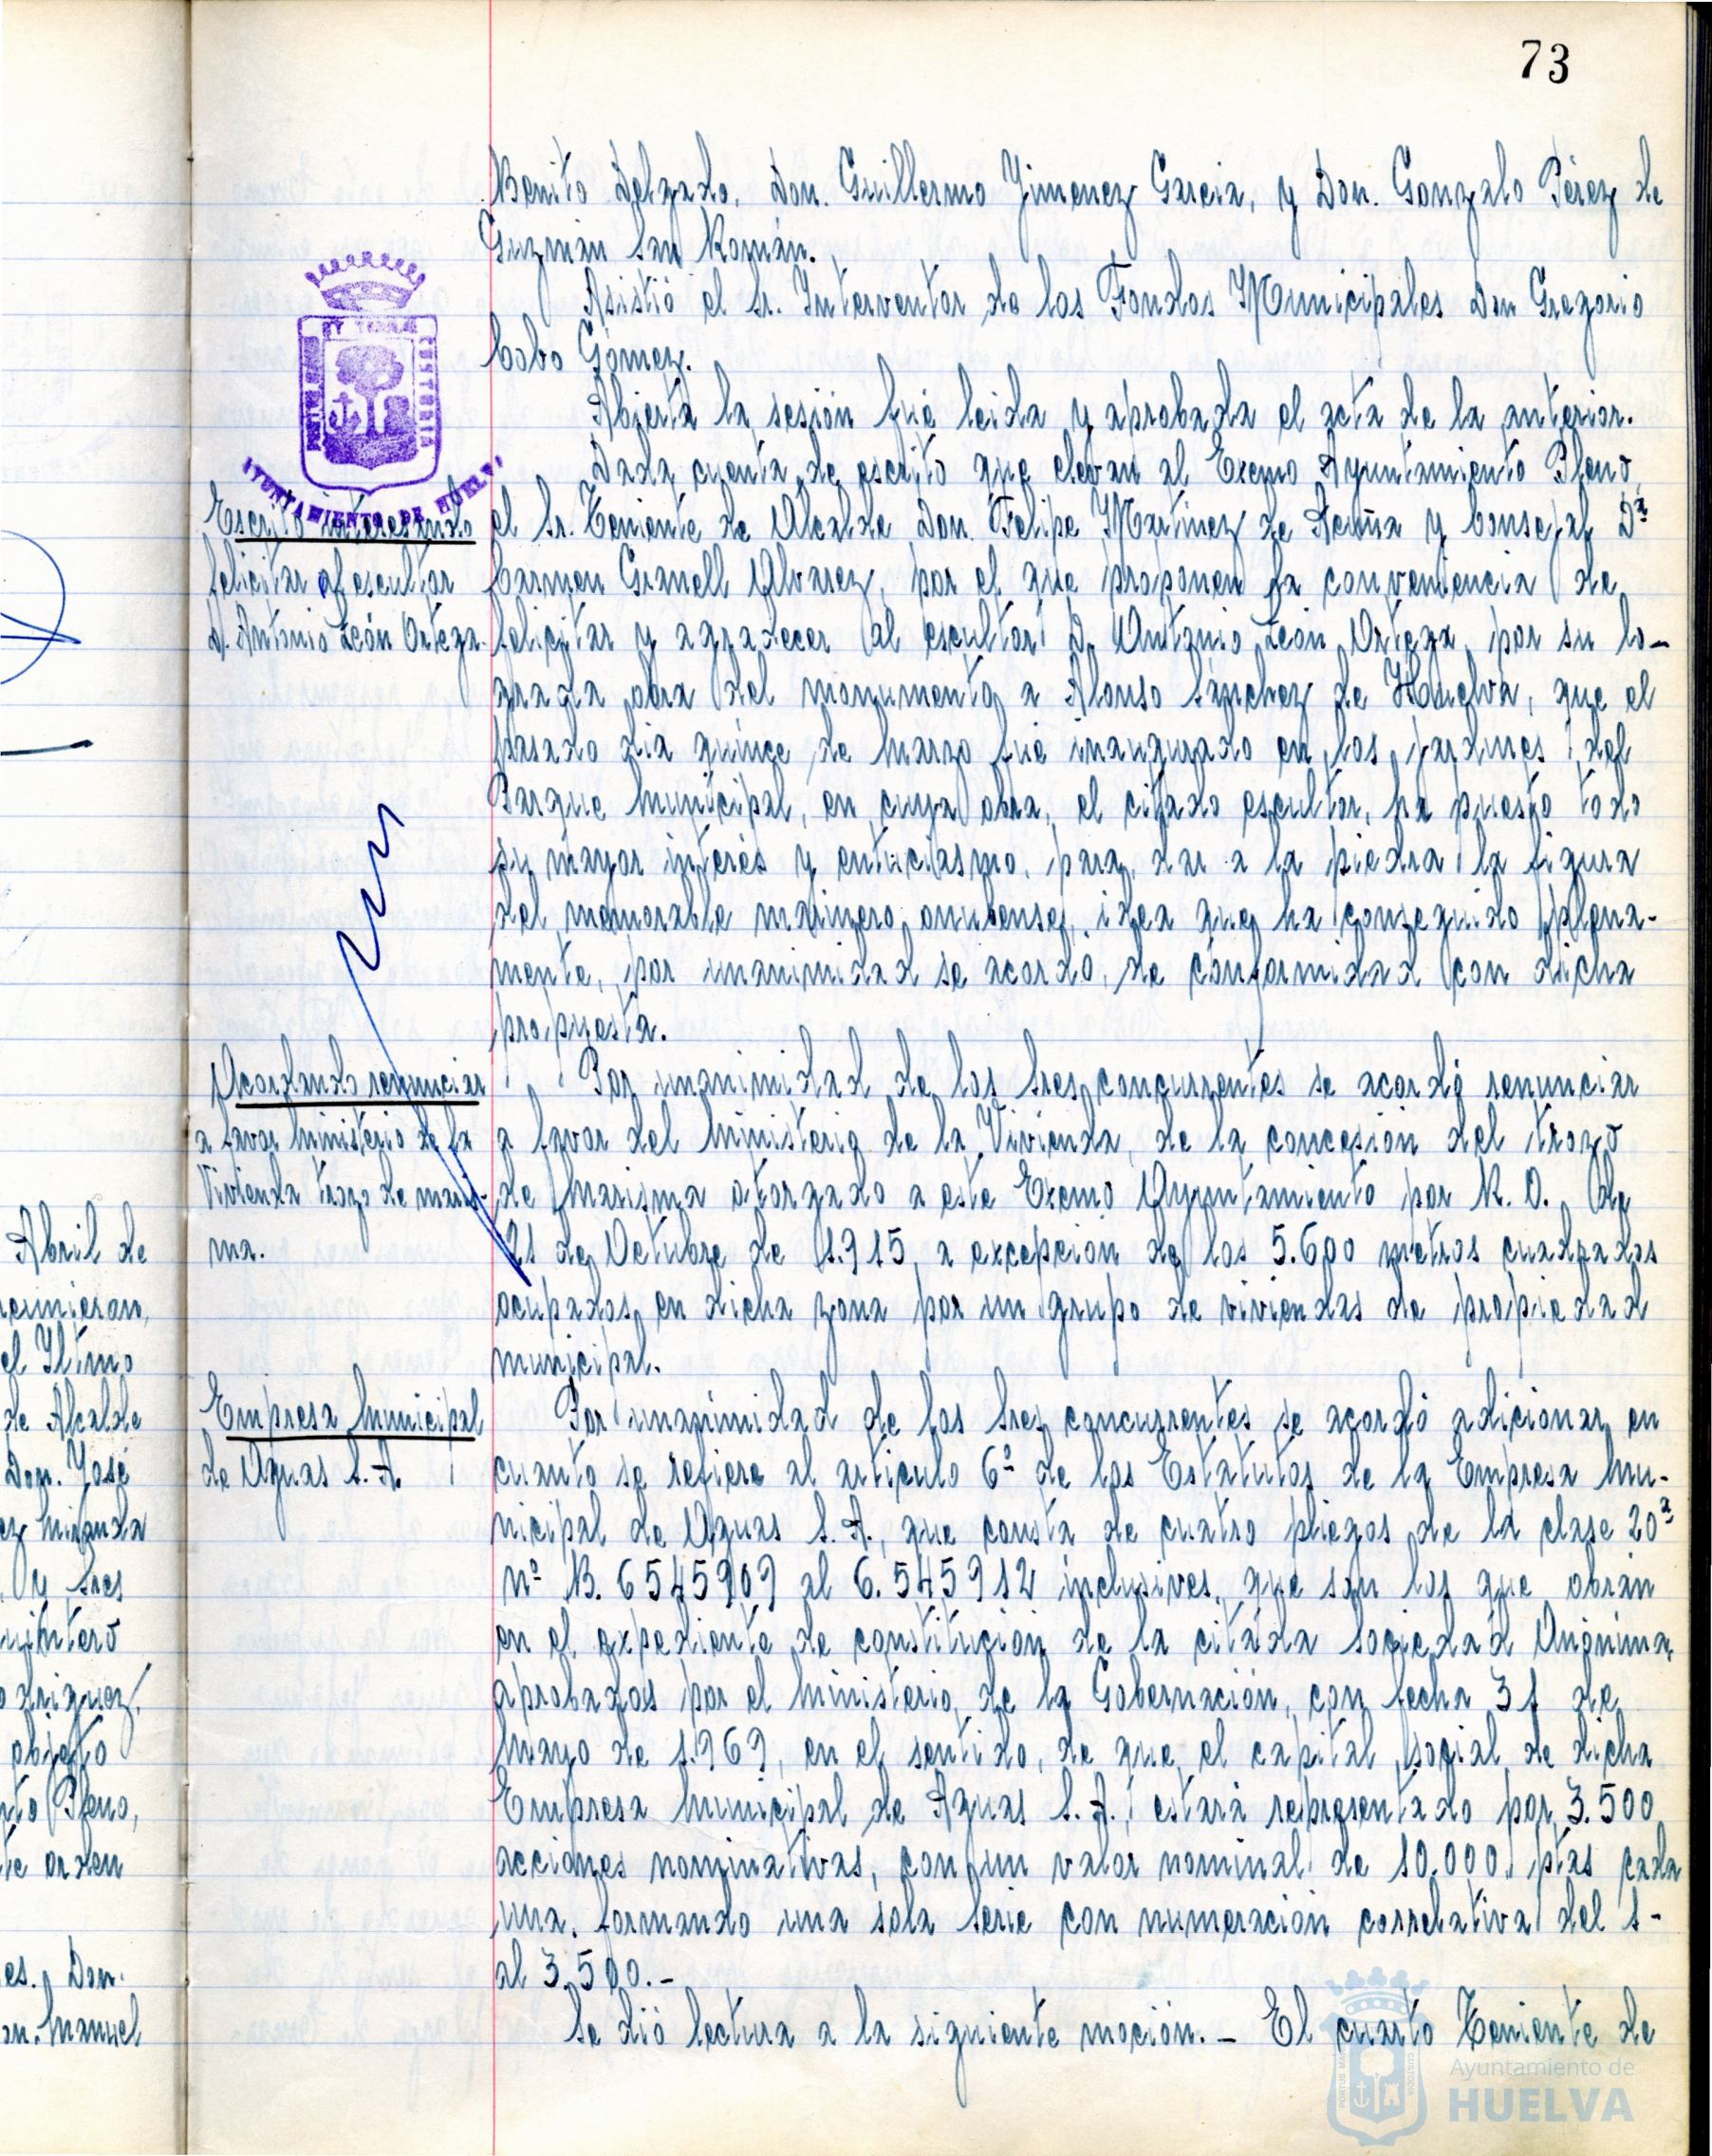 73
Benito Delgado, Don. Guillermo Jimenez Garcia, y Don. Gonzalo Pérez de
Guzmán San Román.
Asistió el Sr. Interventor de los Fondos Municipales Don Gregorio
Cobo Gómez.
Abierta la sesión fué leida y aprobada el acta de la anterior.
Dada cuenta de escrito que elevan al Excmo Ayuntamiento Pleno,
el Sr. Teniente de Alcalde Don. Felipe Martinez de Acuña y Consejal Dª
Carmen Granell Alvarez, por el que proponen la conveniencia de
felicitar y agradecer al escultor D. Antonio León Ortega, por su lo-
grada obra del monumento a Alonso Sánchez de Huelva, que el
pasado dia quince de Marzo fué inaugurado en los jardines del
Parque Municipal, en cuya obra, el citado escultor, ha puesto todo
su mayor interés y entuciasmo, para dar a la piedra la figura
del memorable marinero onubense, idea que ha conseguido plena-
mente, por unanimidad se acordó, de conformidad con dicha
propuesta.
Escrito interesando
felicitar al escultor
D. Antonio León Ortega.
PORTUS MARIS ET TERRAE CUSTODIA
AYUNTAMIENTO DE HUELVA
Por unanimidad de los Sres concurrentes se acordó renunciar
a favor del Ministerio de la Vivienda, de la concesión del trozo
de Marisma otorgado a este Excmo Ayuntamiento por R. O. de
21 de Octubre de 1.915, a excepción de los 5.600 metros cuadrados
ocupados en dicha zona por un grupo de viviendas de propiedad
municipal.
Acordando renunciar
a favor Ministerio de la
Vivienda trozo de maris-
ma.
Por unanimidad de los Sres concurrentes se acordó adicionar en
cuanto se refiere al articulo 6º de los Estatutos de la Empresa Mu-
nicipal de Aguas S. A., que consta de cuatro pliegos de la clase 20ª
nº B. 6545909 al 6.545912 inclusives, que son los que obran
en el expediente de constitución de la citada Sociedad Anónima,
aprobados por el Ministerio de la Gobernación, con fecha 31 de
Mayo de 1.969, en el sentido, de que el capital social de dicha
Empresa Municipal de Aguas S. A. estará representado por 3.500
acciones nominativas, con un valor nominal de 10.000. ptas cada
una, formando una sola Serie con numeración correlativa del 1-
al 3.500.-
Empresa Municipal
de Aguas S. A.
Se dió lectura a la siguiente moción.- El cuarto Teniente de
Abril de
reunieron,
el Yltmo
de Alcalde
Don. José
ez Miranda
y Sres
uintero
odriguez,
objeto
nto Pleno,
te orden
es. Don.
on. Manuel
Ayuntamiento de
HUELVA